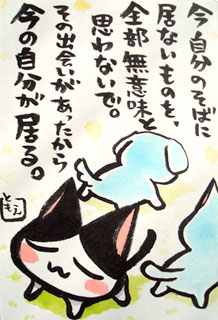 今自分のそばに
居ないものを、
全部無意味と
思わないで。
その出会いがあったから
今の自分が居る。
ともえ